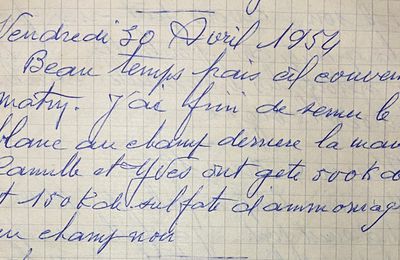 Vendredi 30 Avril 1954
Beau temps frais cil couver
matin. J'ai fini de semer le
blanc au champ derriere la mai
Camille et Yves ont geté 500K d
t 150K de sulfate d'ammoniaq
au champ noir